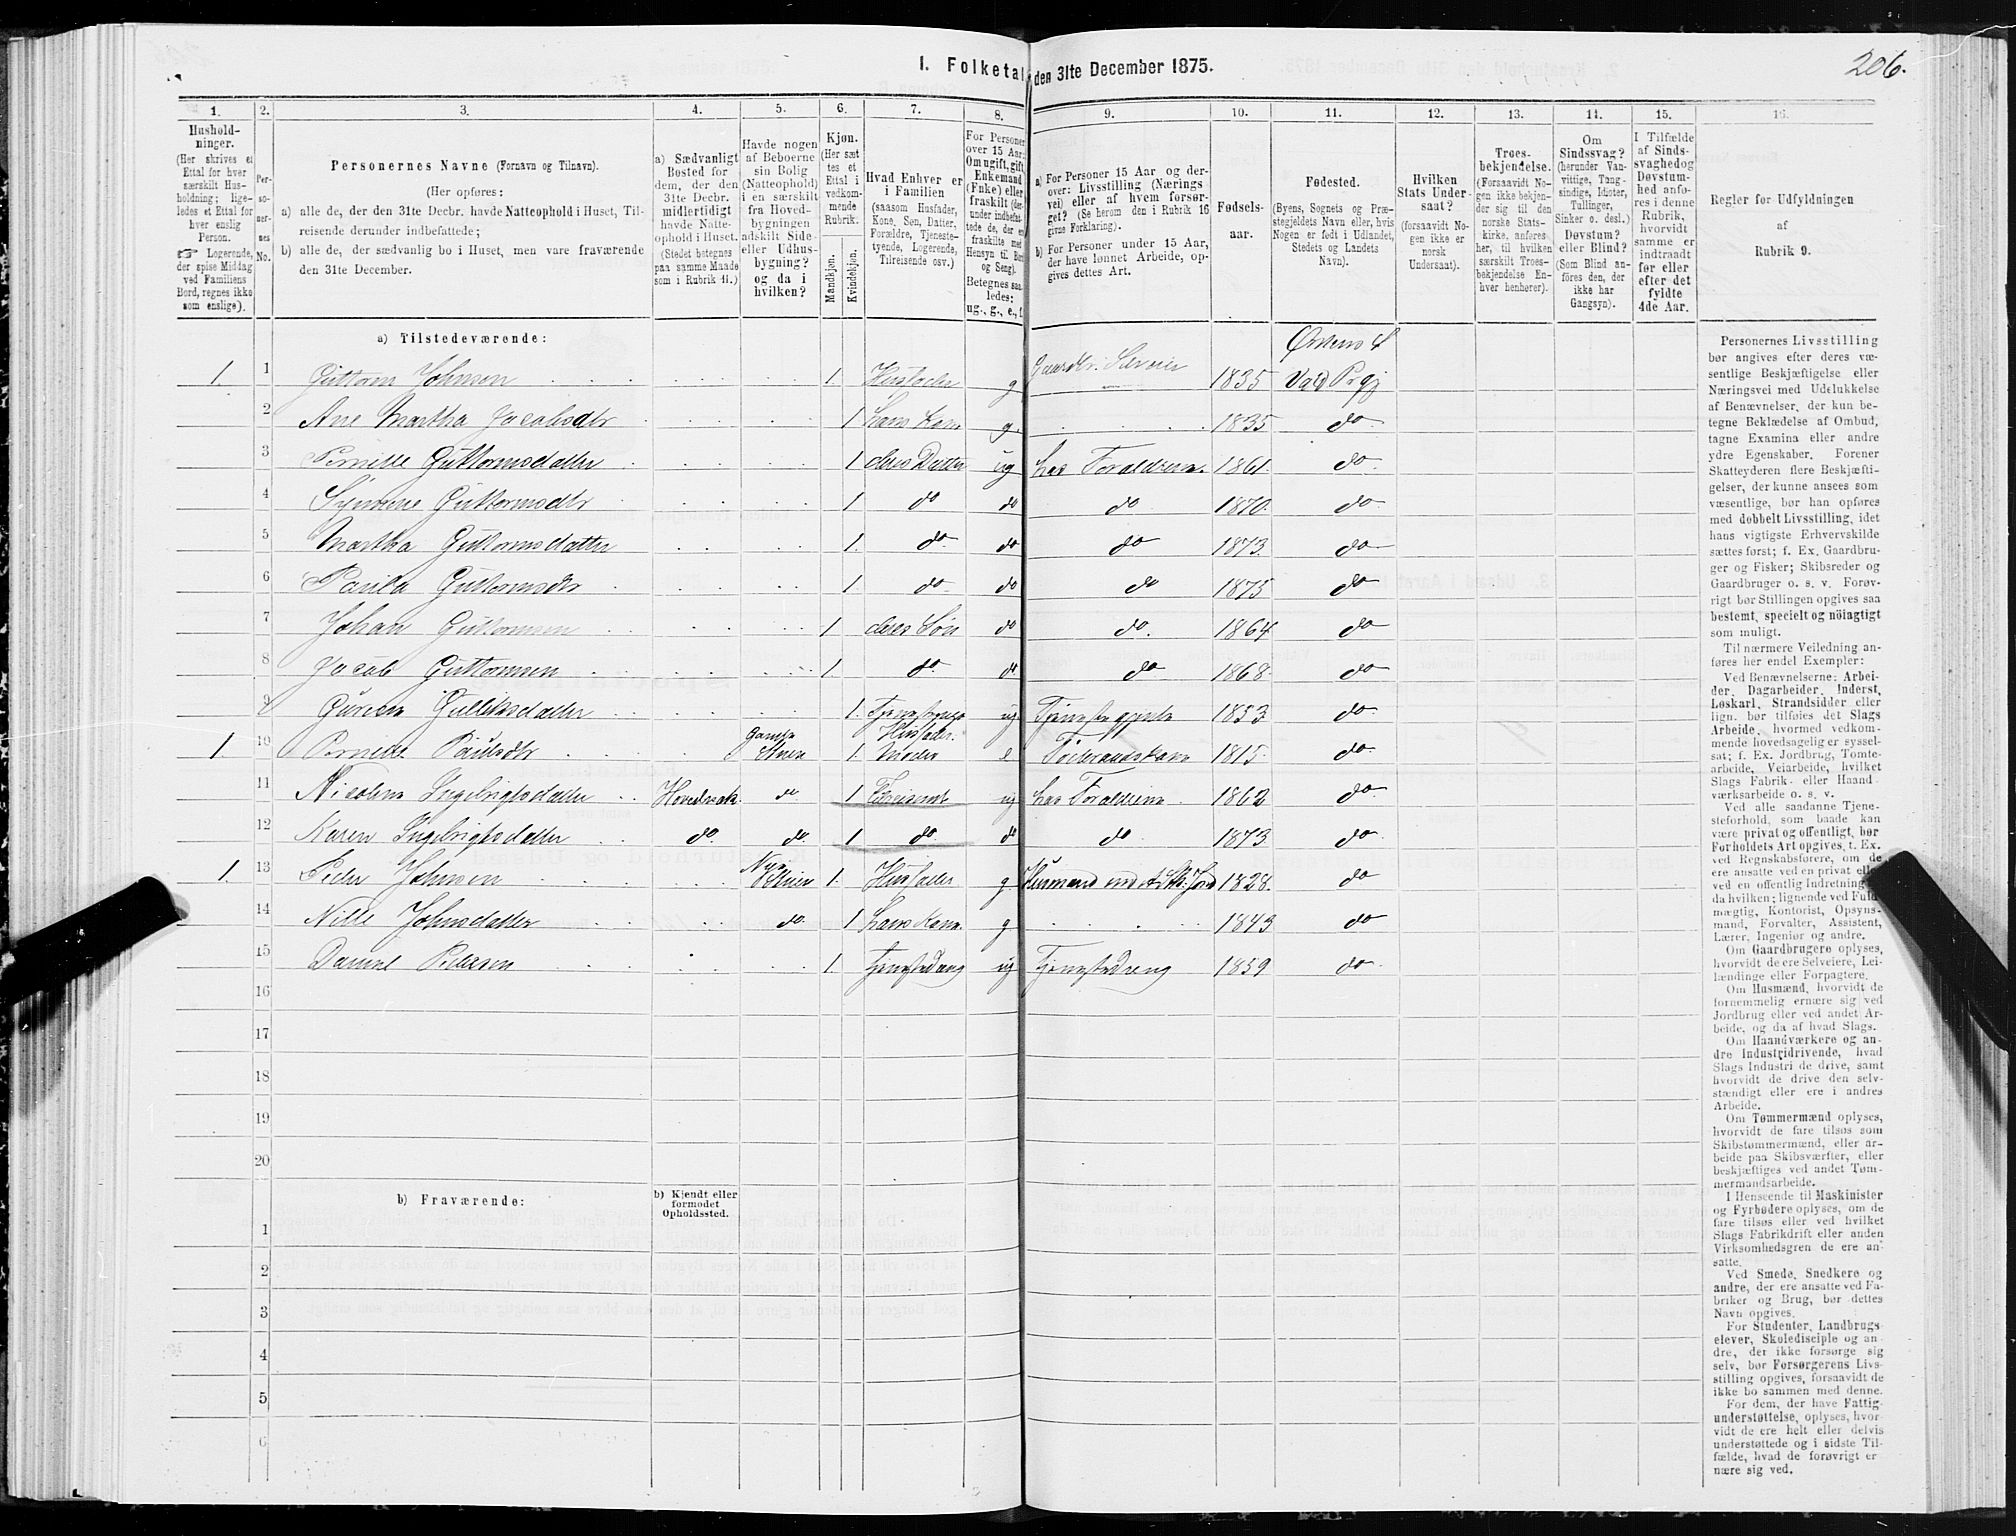 206.
I. Folketal den 31te December 1875.
1. 2. 3. 4. 5. 6. 7. 8. 9. 10. 11. 12. 13. 14. 15. 16.
Hushold-
ninger.
(Her skrives et
Ettal for hver
særskilt Hus-
holdning; lige-
ledes et Ettal for
hver enslig
Person.
☞ Logerende,
der spise Middag
ved Familiens
Bord, regnes ikke
som enslige).
Per-
so-
ner-
nes
No.
Personernes Navne (Fornavn og Tilnavn).
(Her opføres:
a) alle de, der den 31te Decbr. havde Natteophold i Huset, Til-
reisende derunder indbefattede;
b) alle de, der sædvanlig bo i Huset, men vare fraværende
den 31te December.
a) Sædvanligt
Bosted for
dem, der den
31te Decbr.
midlertidigt
havde Natte-
ophold i Huset.
(Stedet betegnes
paa samme Maade
som i Rubrik 11.)
Havde nogen
af Beboerne
sin Bolig
(Natteophold)
i en særskilt
fra Hoved-
bygningen
adskilt Side-
eller Udhus-
bygning?
og da i
hvilken?
Kjøn.
(Her sæt-
tes et
Ettal i
vedkom-
mende
Rubrik.
Mandkjøn.
Kvindekjøn.
Hvad Enhver er
i Familien
(saasom Husfader,
Kone, Søn, Datter,
Forældre, Tjeneste-
tyende, Logerende,
Tilreisende osv.)
For Personer
over 15 Aar:
Om ugift, gift,
Enkemand
(Enke) eller
fraskilt (der-
under indbefat-
tede de, der ere
fraskilte med
Hensyn til Bord
og Seng).
Betegnes saa-
ledes:
ug., g., e., f.
a) For Personer 15 Aar og der-
over: Livsstilling (Nærings-
vei) eller af hvem forsør-
get? (Se herom den i Rubrik 16
givne Forklaring).
b) For Personer under 15 Aar,
der have lønnet Arbeide, op-
gives dettes Art.
Fødsels-
aar.
Fødested.
(Byens, Sognets og Præ-
stegjeldets Navn eller, hvis
Nogen er født i Udlandet,
Stedets og Landets
Navn).
Hvilken
Stats Under-
saat?
(forsaavidt No-
gen ikke er
norsk
Undersaat).
Troes-
bekjendelse.
(Forsaavidt No-
gen ikke bekjen-
der sig til den
norske Stats-
kirke, anføres
her, til hvilken
særskilt Troes-
bekjendelse En-
hver henhører).
Om
Sindssvag?
(herunder Van-
vittige, Tung-
sindige, Idioter,
Tullinger,
Sinker o. desl.)
Døvstum?
eller Blind?
(Som Blind an-
føres den, der
ikke har
Gangsyn).
I Tilfælde
af Sinds-
svaghed og
Døvstum-
hed anfø-
res i denne
Rubrik,
hvorvidt
samme er
indtraadt
før eller
efter det
fyldte
4de Aar.
Regler for Udfyldningen
af
Rubrik 9.
a) Tilstedeværende:
1 1 Guttorm Johnsen 1. Husfader g Gaardbr. Selveier 1835 Valø Prgj
2 Ane Martha Jacobsdtr 1 hans Kone g. 1835 do
3 Pernille Guttormsdatter 1 deres Datter ug hos Forældrene. 1861. do.
4 Guttormsdtr 1 do do do 1870. do
5 Martha Guttormsdatter 1. do. do do 1873. do
6 Guttormsdtr 1. do do do 1875 do
7 Johan Guttormsen 1 deres Søn do do. 1864 do
8 Jacob Guttormsen 1. do. do do 1868. do
9 Gurine Gulliksdatter 1. ug. Tjenestepige 1853. do.
1 10 Pernille Paulsdtr Gamle Stuen 1. Husfader. Moder e Føderaadskone 1815. do.
11 Nicoline Ingebrigtsdatter do 1 Tilreisende ug hos Forældrene. 1862 do.
12 Karen Ingebrigtsdatter do. do. 1 do do do 1873. do.
1. 13 Peder Johnsen Nye Stuen 1. Husfader g Husmand med Jord 1828. do
14 Nille Johnsdatter do. 1 hans Kone. g 1843 do
15 Daniel Pedersen 1. Tjenestedreng ug Tjenestedreng 1859 do.
16
17
18
19
20
b) Fraværende:
b) Kjendt eller
formodet
Opholdssted.
1
2
3
4
5
6
Personernes Livsstilling
bør angives efter deres væ-
sentlige Beskjæftigelse eller
Næringsvei med Udelukkelse
af Benævnelser, der kun be-
tegne Beklædelse af Ombud,
tagne Examina eller andre
ydre Egenskaber. Forener
Skatteyderen flere Beskjæfti-
gelser, der kunne ansees som
væsentlige, bør han opføres
med dobbelt Livsstilling, idet
hans vigtigste Erhvervskilde
sættes først; f. Ex. Gaardbru-
ger og Fisker; Skibsreder og
Gaardbruger o. s. v. Forøv-
rigt bør Stillingen opgives saa
bestemt, specielt og nøiagtigt
som muligt.
Til nærmere Veiledning an-
føres her endel Exempler:
Ved Benævnelserne: Arbei-
der, Dagarbeider, Inderst,
Løskarl, Strandsidder eller
lign. bør tilføies det Slags
Arbeide, hvormed vedkom-
mende hovedsagelig er syssel-
sat; f. Ex. Jordbrug, Tomte-
arbeide, Veiarbeide, hvilket
Slags Fabrik- eller Haand-
værksarbeide o. s. v.
Ved alle saadanne Tjene-
steforhold, som baade kan
være privat og offentligt, bør
Forholdets Art opgives, t. Ex.
ved Regnskabsførere, om de
ere ansatte ved en privat eller
ved en offentlig Indretning og
da hvilken; lignende ved Fuld-
mægtig, Kontorist, Opsyns-
mand, Forvalter, Assistent,
Lærer, Ingeniør og andre.
Om Gaardbrugere oplyses,
hvorvidt de ere Selveiere, Lei-
lændinge eller Forpagtere.
Om Husmænd, hvorvidt de
fornemmelig ernære sig ved
Jordbrug eller ved andet Ar-
beide, og da af hvad Slags.
Om Haandværkere og an-
dre Industridrivende, hvad
Slags Industri de drive, samt
hvorvidt de drive den selv-
stændigt eller ere i andres
Arbeide.
Om Tømmermænd oplyses,
hvorvidt de fare tilsøs som
Skibstømmermænd, eller ar-
beide paa Skibsværfter, eller
beskjæftiges ved andet Tøm-
mermandsarbeide.
I Henseende til Maskinister
og Fyrbødere oplyses, om de
fare tilsøs eller ved hvilket
Slags Fabrikdrift eller anden
Virksomhedsgren de ere an-
satte.
Ved Smede, Snedkere og
andre, der ere ansatte ved Fa-
briker og Brug, bør dettes
Navn opgives.
For Studenter, Landbrugs-
elever, Skoledisciple og an-
dre, der ikke forsørge sig
selv, bør Forsørgerens Livs-
stilling opgives, forsaavidt de
ikke bo sammen med denne.
For dem, der have Fattig-
understøttelse, oplyses, hvor-
vidt de ere helt eller delvis
understøttede og i sidste Til-
fælde, hvad de forøvrigt er-
nære sig ved.